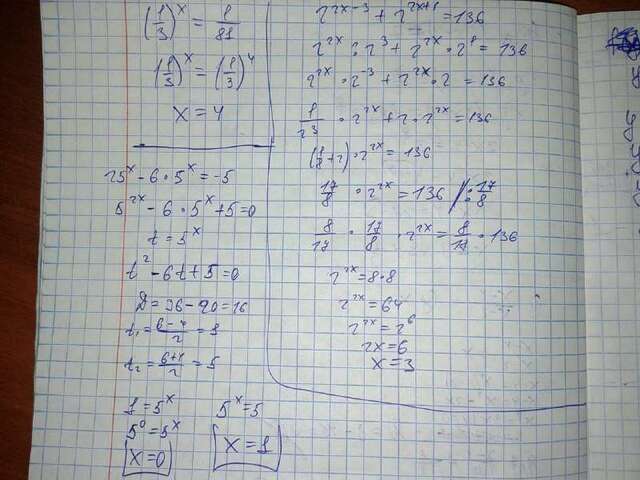 (1/3)^x = 1/81
(1/3)^x = (1/3)^4
x = 4
25^x - 6 · 5^x = -5
5^2x - 6 · 5^x + 5 = 0
t = 5^x
t^2 - 6t + 5 = 0
D = 36 - 20 = 16
t₁ = (6-4)/2 = 1
t₂ = (6+4)/2 = 5
1 = 5^x 5^x = 5
5^0 = 5^x
x = 0 x = 1
2^2x-3 + 2^2x+1 = 136
2^2x : 2^3 + 2^2x · 2^1 = 136
2^2x · 2^-3 + 2^2x · 2 = 136
1/2^3 · 2^2x + 2 · 2^2x = 136
(1/8 + 2) · 2^2x = 136
17/8 · 2^2x = 136 / : 17/8
8/17 · 17/8 · 2^2x = 8/17 · 136
2^2x = 8 · 8
2^2x = 64
2^2x = 2^6
2x = 6
x = 3